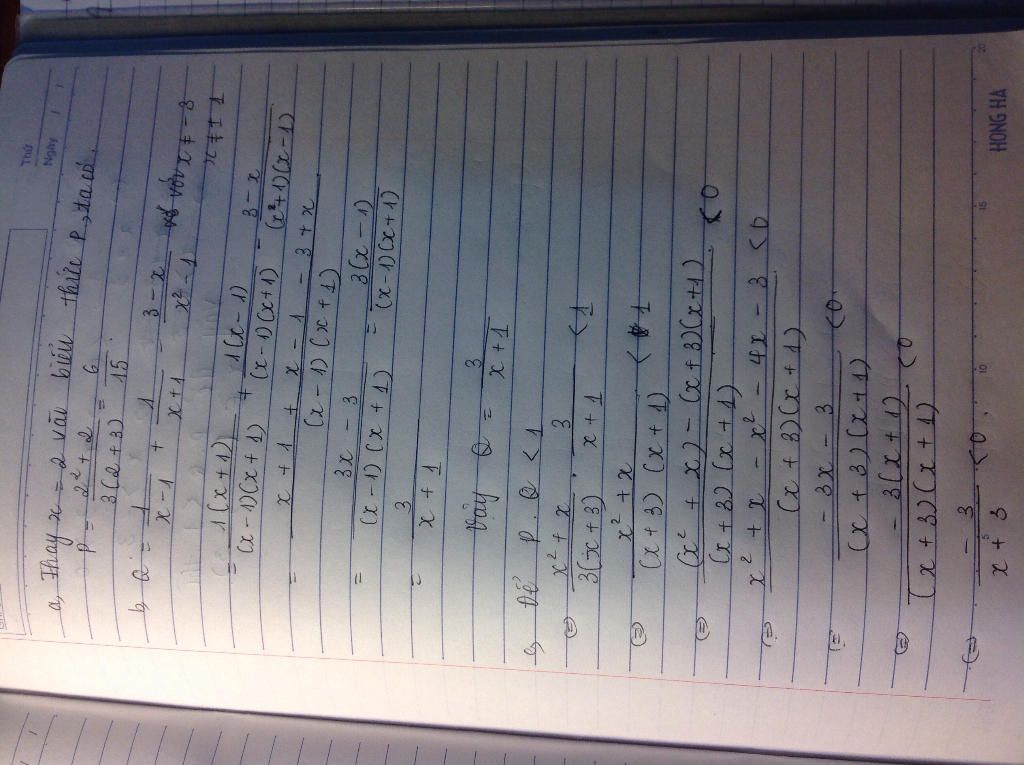 Thứ
Ngày
a, Thay x = 2 vào biểu thức P, ta có.
P = \frac{2² + 2}{3(2 + 3)} = \frac{6}{15}
b, Q = \frac{1}{x - 1} + \frac{1}{x + 1} - \frac{3 - x}{x² - 1} với x ≠ -3
x ≠ ± 1
= \frac{1(x + 1)}{(x - 1)(x + 1)} + \frac{1(x - 1)}{(x - 1)(x + 1)} - \frac{3 - x}{(x + 1)(x - 1)}
= \frac{x + 1 + x - 1 - 3 + x}{(x - 1)(x + 1)}
= \frac{3x - 3}{(x - 1)(x + 1)} = \frac{3(x - 1)}{(x - 1)(x + 1)}
= \frac{3}{x + 1}
Vậy Q = \frac{3}{x + 1}
c, Để P . Q < 1
(=) \frac{x² + x}{3(x + 3)} . \frac{3}{x + 1} < 1
(=) \frac{x² + x}{(x + 3)(x + 1)} < 1
(=) \frac{(x² + x) - (x + 3)(x + 1)}{(x + 3)(x + 1)} < 0
(=) \frac{x² + x - x² - 4x - 3}{(x + 3)(x + 1)} < 0
(=) \frac{- 3x - 3}{(x + 3)(x + 1)} < 0.
(=) \frac{- 3(x + 1)}{(x + 3)(x + 1)} < 0
(=) \frac{- 3}{x + 3} < 0.
5 10 15 20
HONG HA